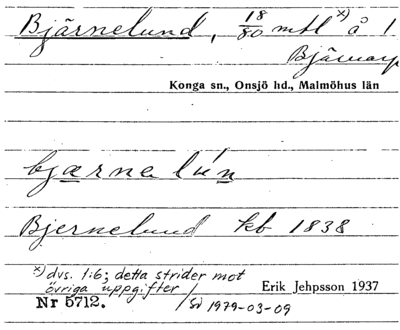 Bjärnelund, 18/80 mtl x) å 1
Bjärnarp
Konga sn., Onsjö hd., Malmöhus län
bjærnelún
Bjernelund kb 1838
x) dvs. 1:6; detta strider mot
övriga uppgifter / Erik Jehpsson 1937
Nr 5712. / 1979-03-09